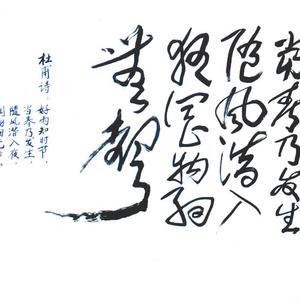 春乃发生
随风潜入
夜润物细
無聲
杜甫诗：好雨知时节
当春乃发生，
随风潜入夜，